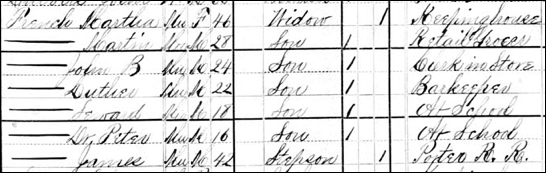 Martha Mu F 46 Widow 1 Keeping house
Martin Mu M 28 Son 1 Retail Grocer
John B Mu M 24 Son 1 Clerk in Store
Luther Mu M 22 Son 1 Barkeeper
Seward Mu M 18 Son 1 At School
Dr. Peter Mu M 16 Son 1 At School
James Mu M 42 Stepson 1 Porter R. R.